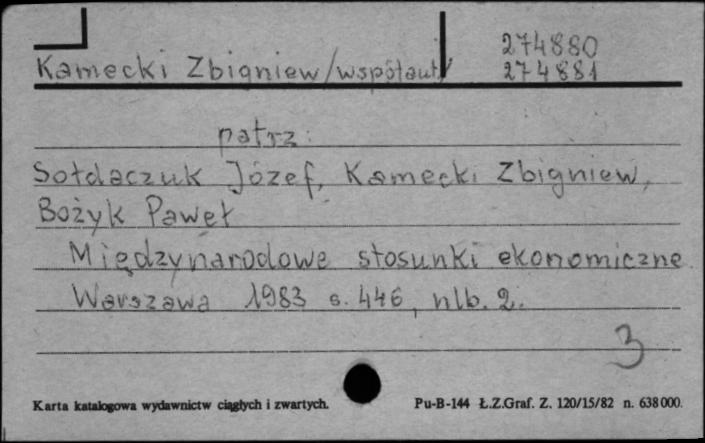 274880
Kamecki Zbigniew/współaut/ 274881
patrz:
Sołdaczuk Józef, Kamecki Zbigniew,
Bożyk Paweł
Międzynarodowe stosunki ekonomiczne
Warszawa 1983 s. 446, nlb. 2.
3
Karta katalogowa wydawnictw ciągłych i zwartych. Pu-B-144 Ł.Z.Graf. Z. 120/15/82 n. 638000.